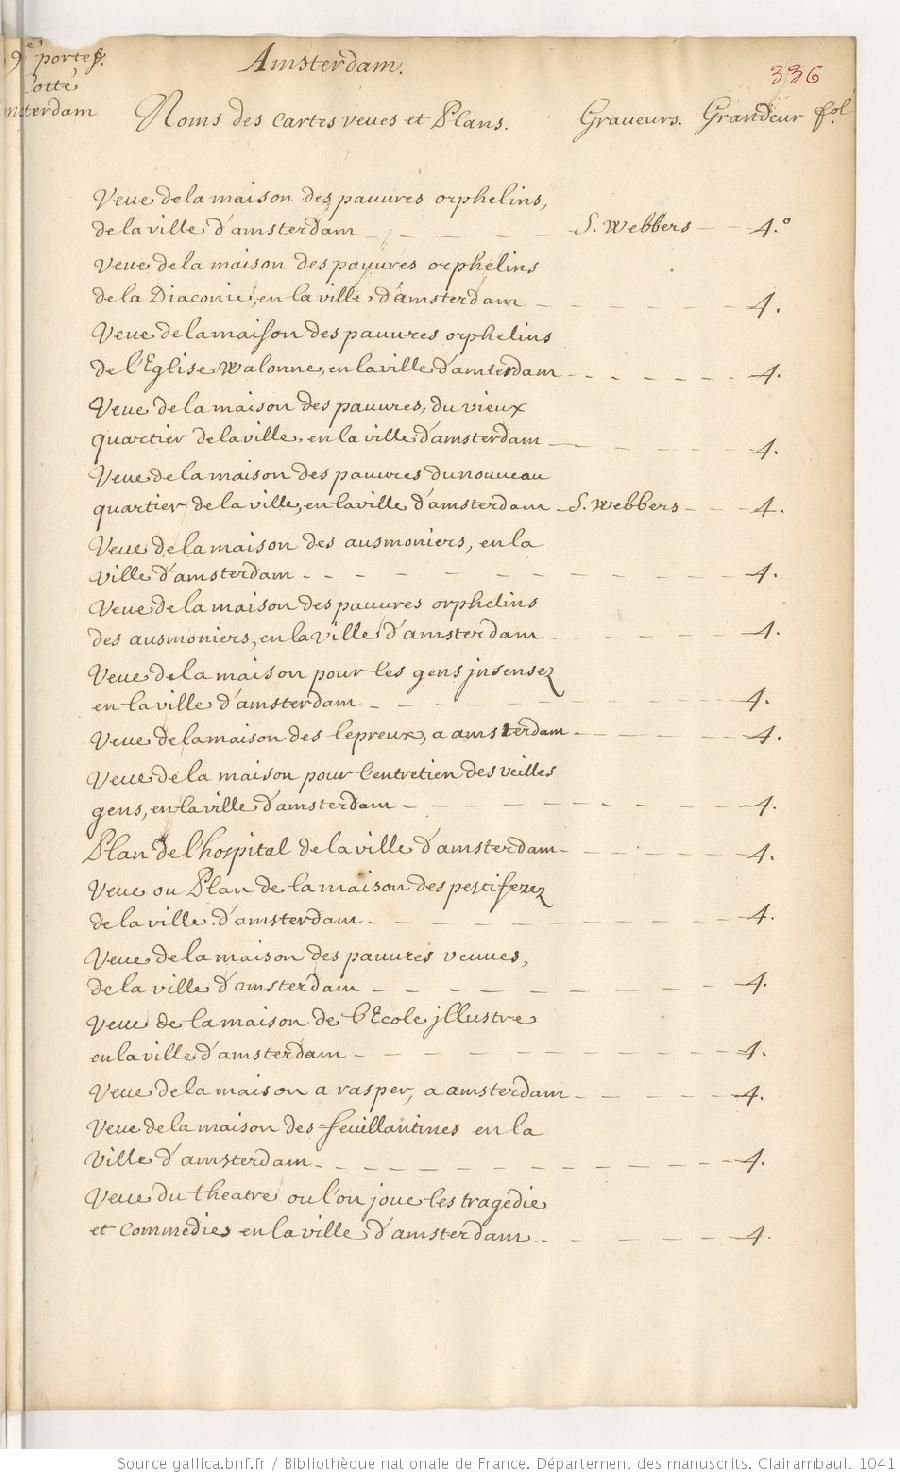 9.es portef.
Cotté
Amsterdam
Amsterdam.
336
Noms des Cartes veues et Plans. Graveurs. Grandeur fol.
Veue de la maison des pauures orphelins,
de la ville d'amsterdam — S. Webbers — 4.º
Veue de la maison des pauures orphelins
de la Diaconie, en la ville d'amsterdam — 4.
Veue de la maison des pauures orphelins
de l'Eglise Walonne, en la ville d'amsterdam — 4.
Veue de la maison des pauures, du vieux
quartier de la ville, en la ville d'amsterdam — 4.
Veue de la maison des pauures du nouueau
quartier de la ville, en la ville d'amsterdam — S. Webbers — 4.
Veue de la maison des ausmoniers, en la
ville d'amsterdam — 4.
Veue de la maison des pauures orphelins
des ausmoniers, en la ville d'amsterdam — 4.
Veue de la maison pour les gens jnsensez
en la ville d'amsterdam — 4.
Veue de la maison des lepreux, a amsterdam — 4.
Veue de la maison pour l'entretien des veilles
gens, en la ville d'amsterdam — 4.
Plan de l'hospital de la ville d'amsterdam — 4.
Veue ou Plan de la maison des pestiferez
de la ville d'amsterdam — 4.
Veue de la maison des pauures veuues,
de la ville d'amsterdam — 4.
Veue de la maison de l'Ecole jllustre
en la ville d'amsterdam — 4.
Veue de la maison a rasper, a amsterdam — 4.
Veue de la maison des feuillantines en la
ville d'amsterdam — 4.
Veue du theatre ou l'on joue les tragedie
et Commedies en la ville d'amsterdam — 4.
Source gallica.bnf.fr / Bibliothèque nationale de France. Département des manuscrits. Clairambault 1041